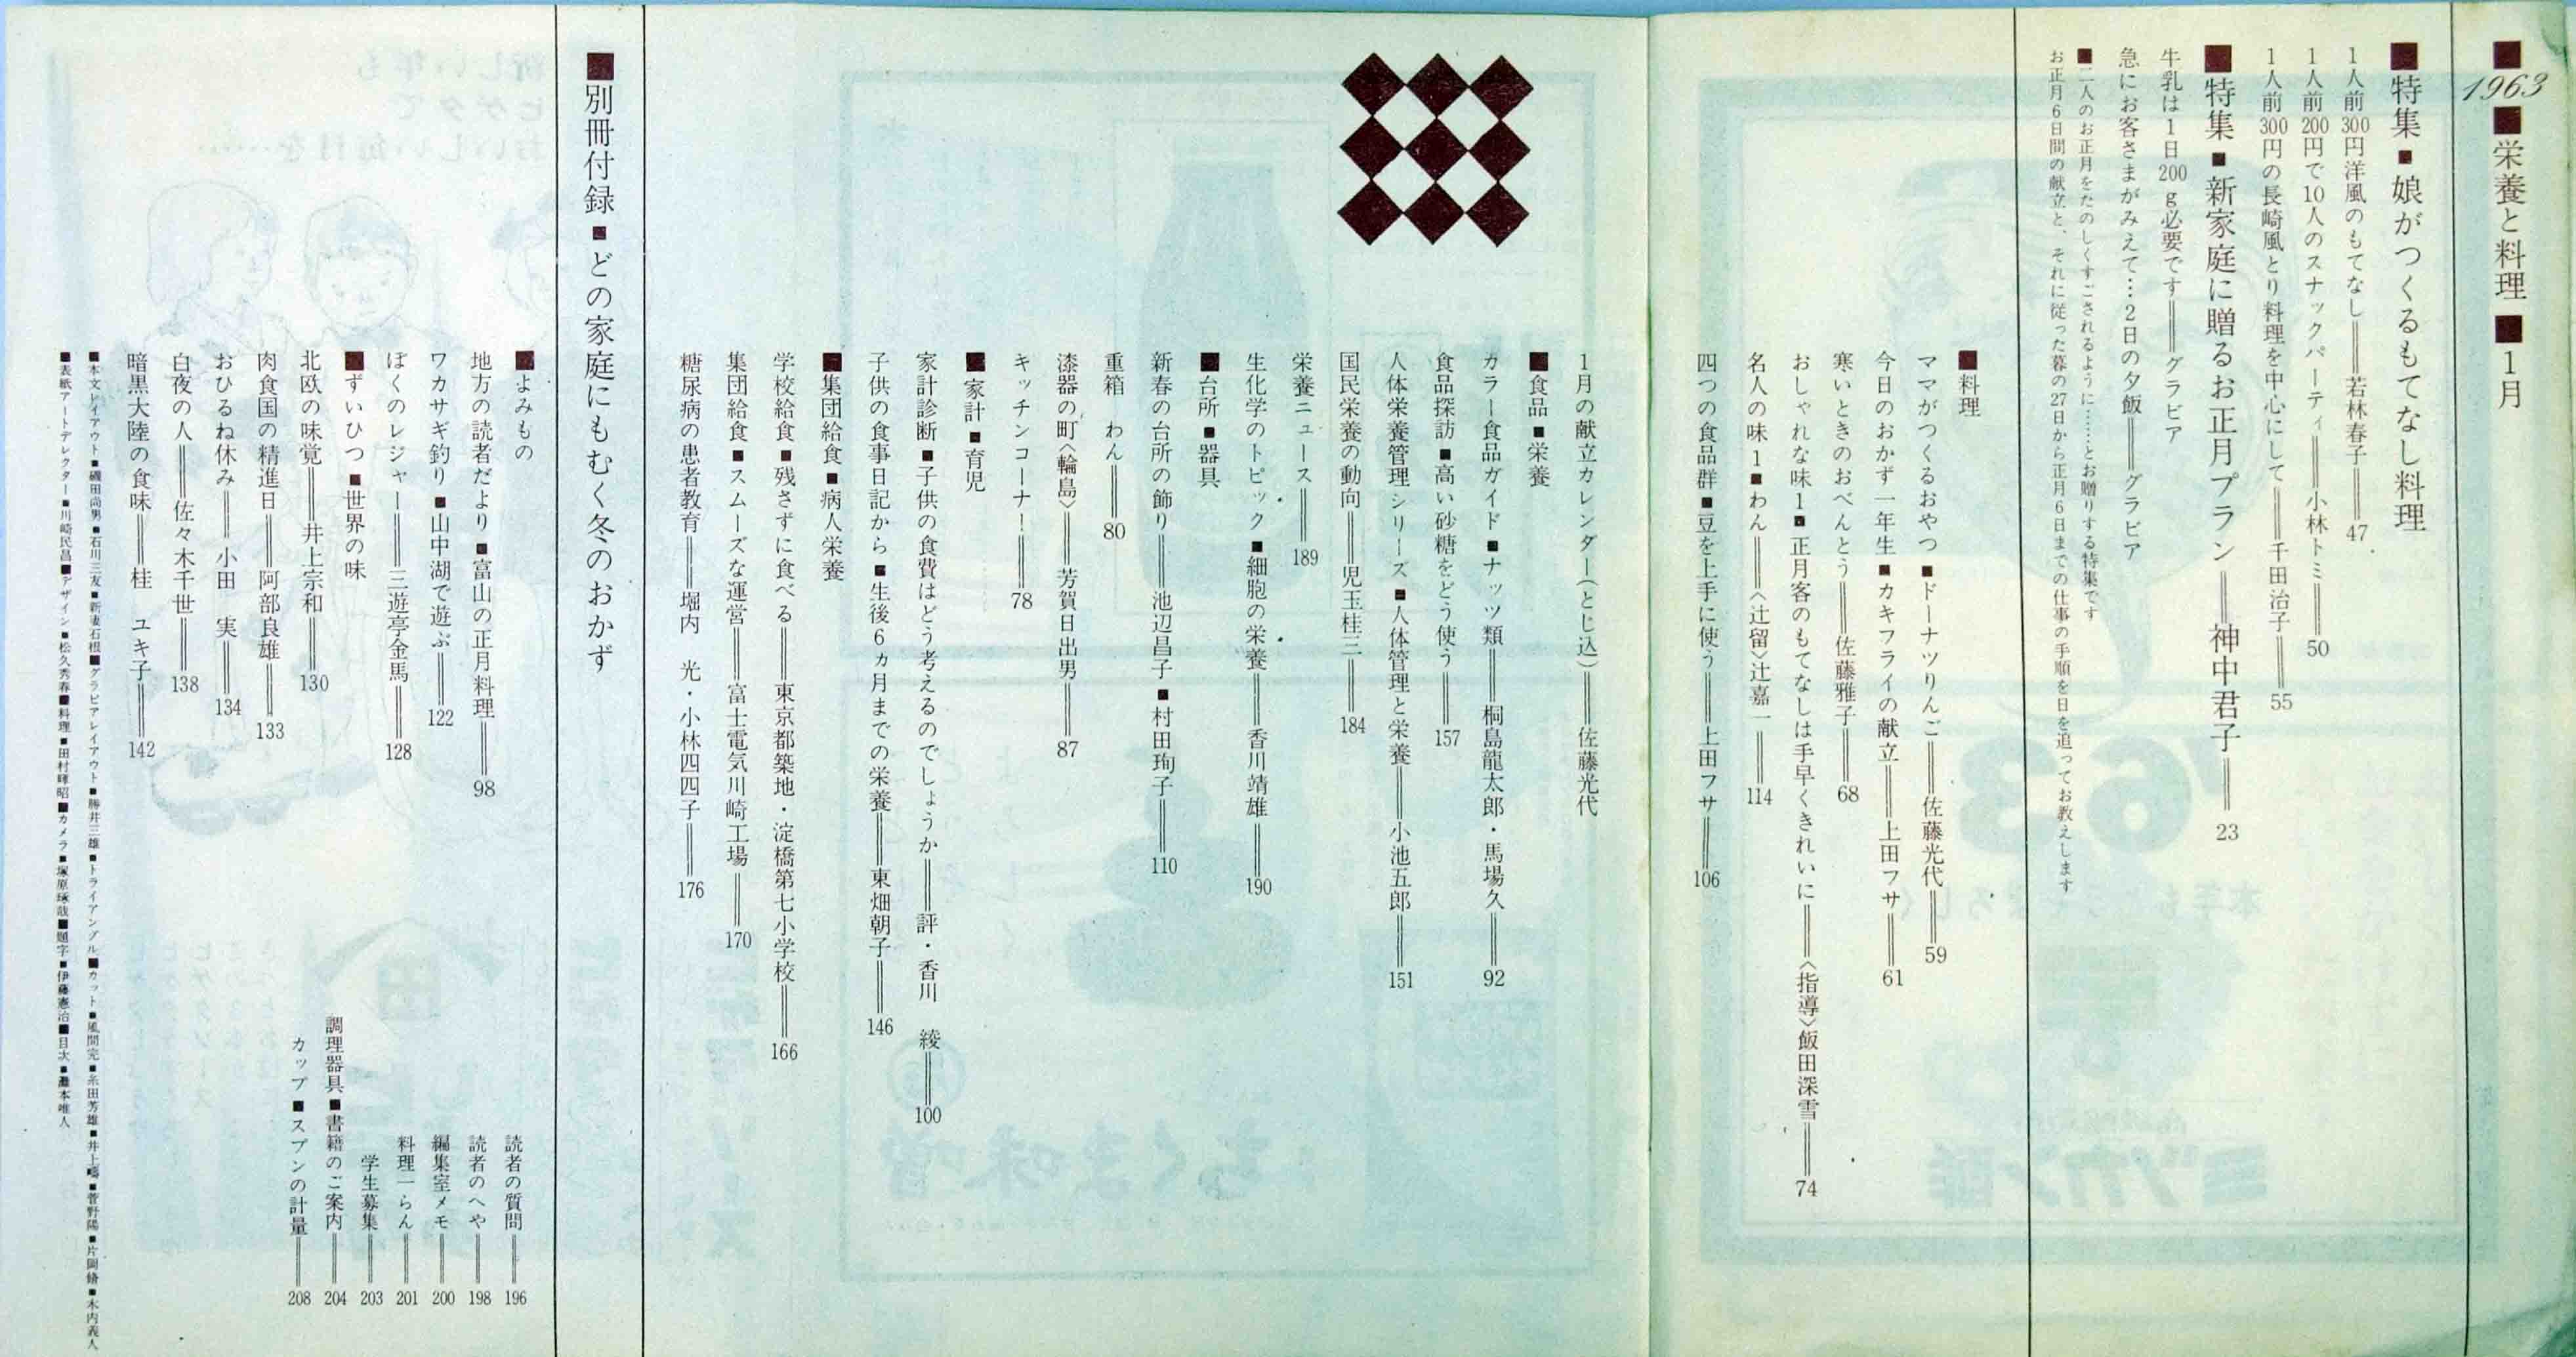 ■1963■栄養と料理■1月
■特集■娘がつくるもてなし料理
1人前300円洋風のもてなし══若林春子══47
1人前200円で10人のスナックパーティ══小林トミ══50
1人前300円の長崎風とり料理を中心にして══千田治子══55
■特集■新家庭に贈るお正月プラン══神中君子══23
牛乳は1日200g必要です══グラビア
急にお客さまがみえて…2日の夕飯══グラビア
■二人のお正月をたのしくすごされるように……とお贈りする特集です
お正月6日間の献立と、それに従った暮の27日から正月6日までの仕事の手順を日を追ってお教えします
■料理
ママがつくるおやつ■ドーナツりんご══佐藤光代══59
今日のおかず一年生■カキフライの献立══上田フサ══61
寒いときのおべんとう══佐藤雅子══68
おしゃれな味1■正月客のもてなしは手早くきれいに══〈指導〉飯田深雪══74
名人の味1■わん══〈辻留〉辻嘉一══114
四つの食品群■豆を上手に使う══上田フサ══106
1月の献立カレンダー(とじ込)══佐藤光代
■食品■栄養
カラー食品ガイド■ナッツ類══桐島龍太郎・馬場久══92
食品探訪■高い砂糖をどう使う══157
人体栄養管理シリーズ■人体管理と栄養══小池五郎══151
国民栄養の動向══児玉桂三══184
栄養ニュース══189
生化学のトピック■細胞の栄養══香川靖雄══190
■台所■器具
新春の台所の飾り══池辺昌子■村田珣子══110
重箱 わん══80
漆器の町〈輪島〉══芳賀日出男══87
キッチンコーナー══78
■家計■育児
家計診断■子供の食費はどう考えるのでしょうか══評・香川 綾══100
子供の食事日記から■生後6ヵ月までの栄養══東畑朝子══146
■集団給食■病人栄養
学校給食■残さずに食べる══東京都築地・淀橋第七小学校══166
集団給食■スムーズな運営══富士電気川崎工場══170
糖尿病の患者教育══堀内 光・小林四四子══176
■別冊付録■どの家庭にもむく冬のおかず
■よみもの
地方の読者だより■富山の正月料理══98
ワカサギ釣り■山中湖で遊ぶ══122
ぼくのレジャー══三遊亭金馬══128
■ずいひつ■世界の味
北欧の味覚══井上宗和══130
肉食国の精進日══阿部良雄══133
おひるね休み══小田 実══134
白夜の人══佐々木千世══138
暗黒大陸の食味══桂 ユキ子══142
読者の質問══196
読者のへや══198
編集室メモ══200
料理一らん══201
学生募集══203
調理器具■書籍のご案内══204
カップ■スプンの計量══208
■本文レイアウト■磯田尚男■石川三友■新妻石根■グラビアレイアウト■勝井三雄■トライアングル■カット■風間完■糸田芳雄■井上■菅野陽■片岡脩■木内義人
■表紙アートデレクター■川崎民昌■デザイン■松久秀春■料理■田村暉昭■カメラ■塚原琢哉■題字■伊藤憲治■目次■灘本唯人